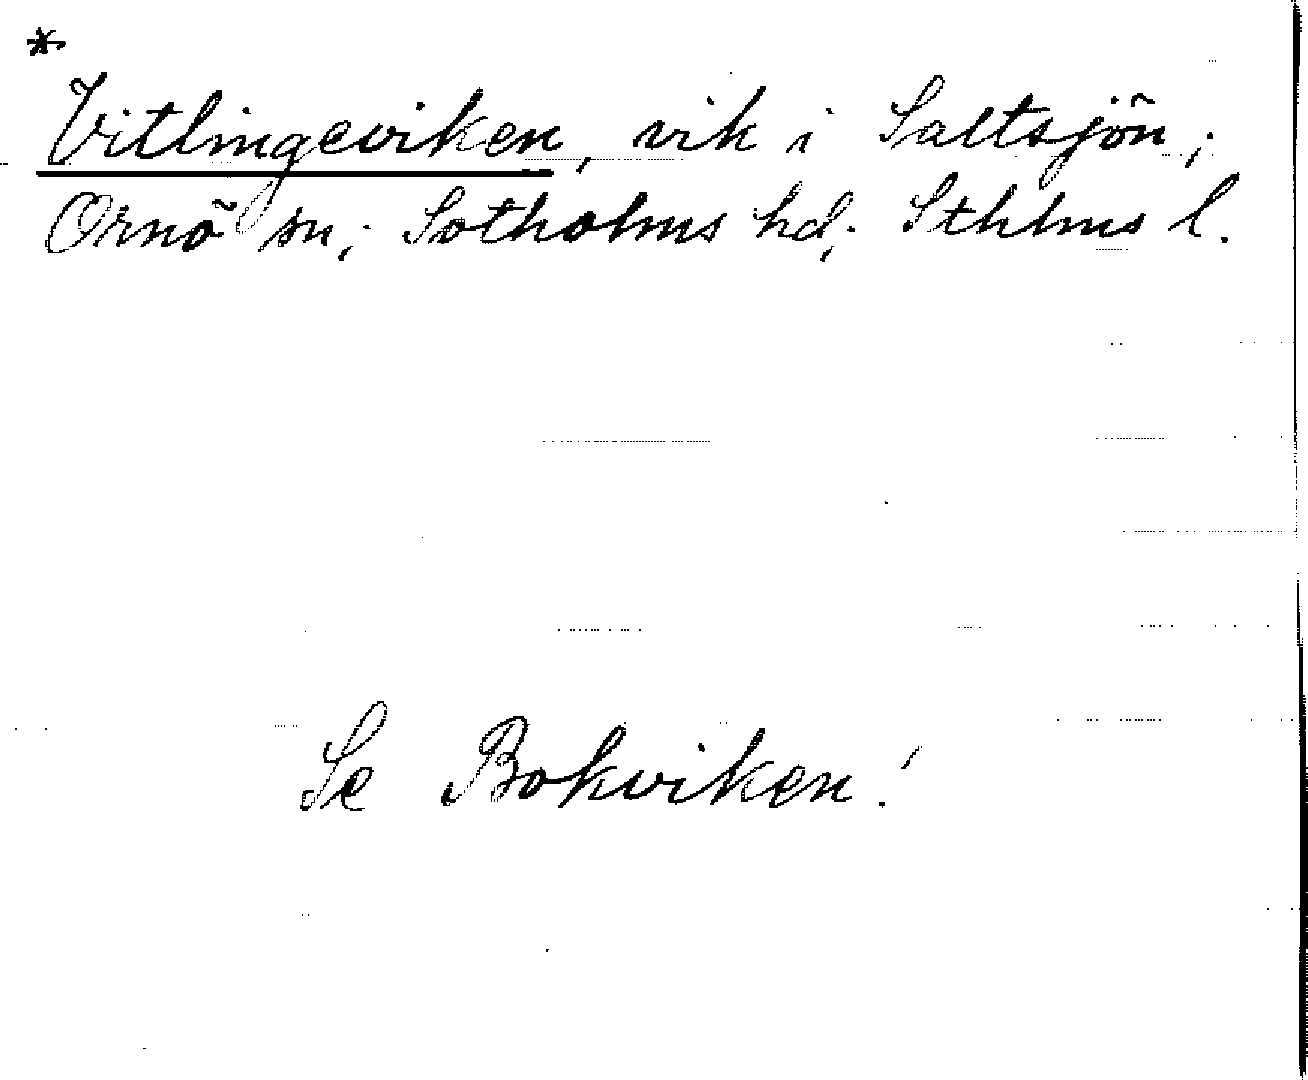 *
Vitlingeviken, vik i Saltsjön;
Ornö sn; Sotholms hd; Sthlms l.
Se Bokviken!